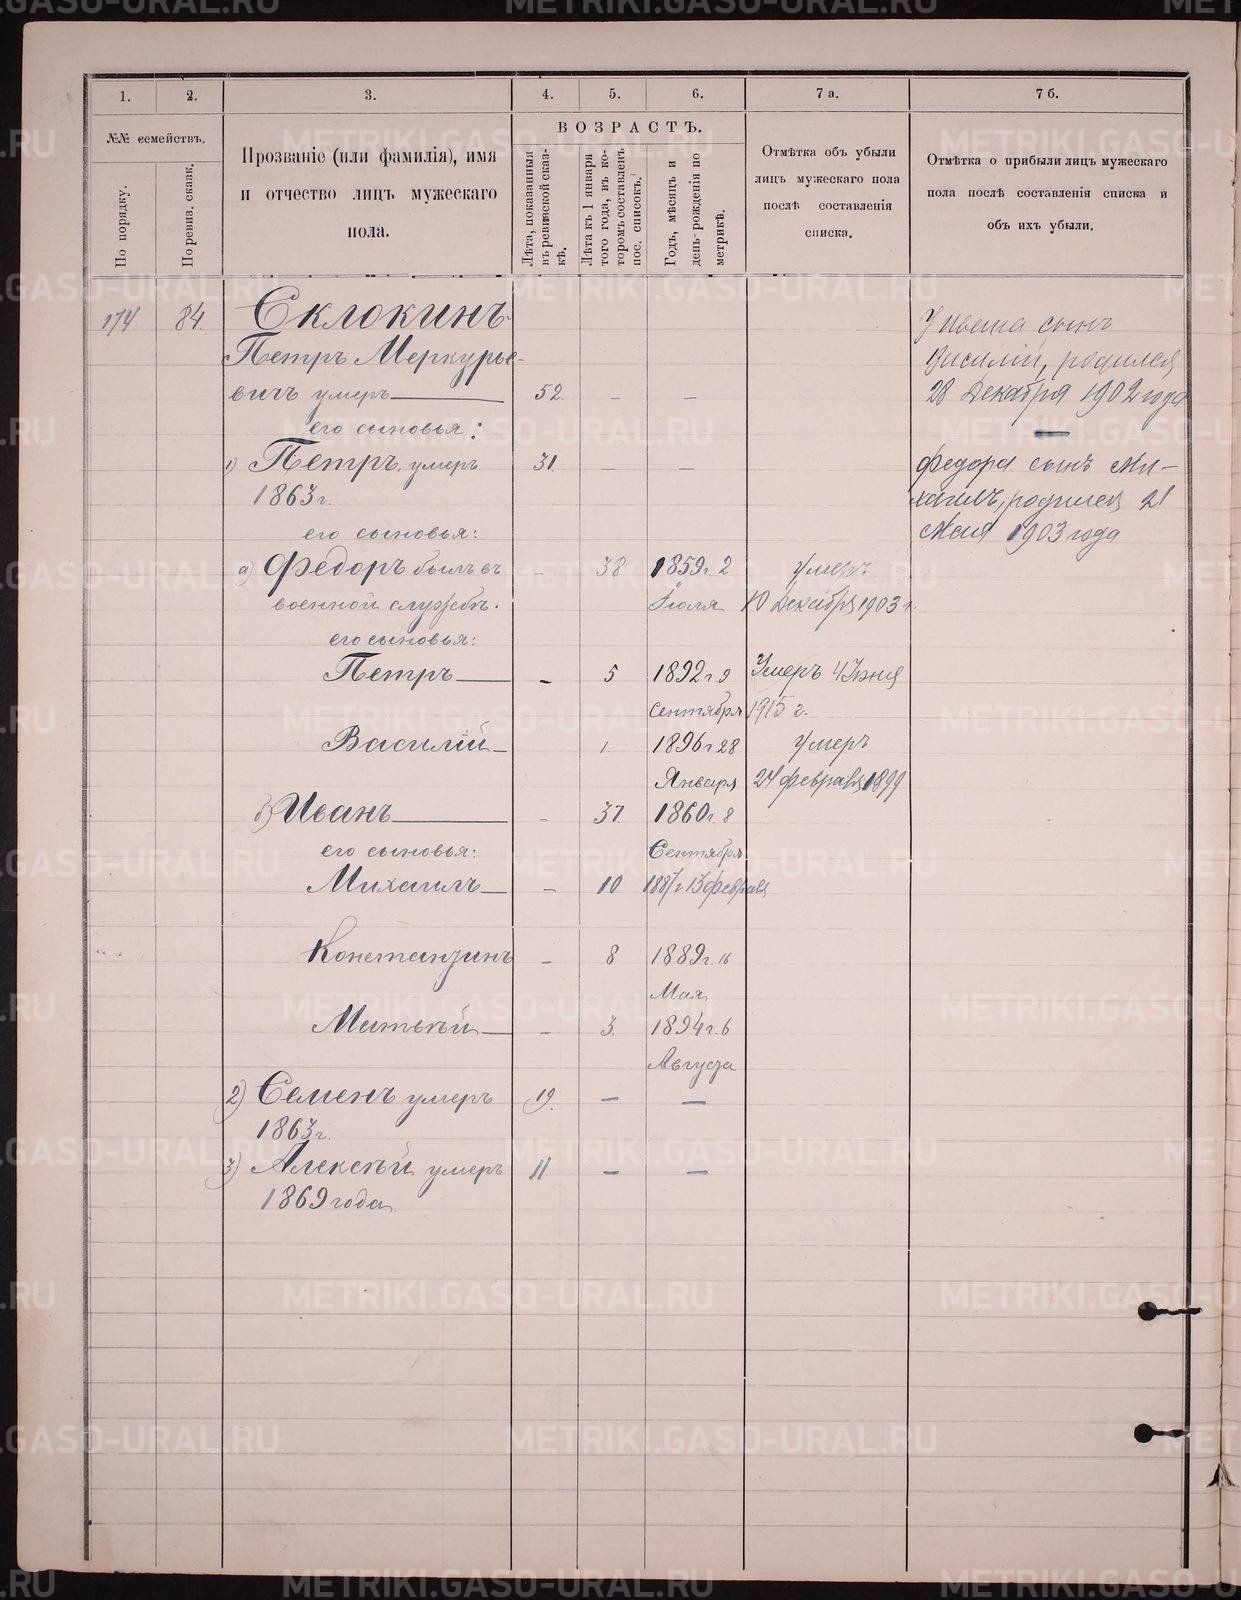 1. 2. 3. 4. 5. 6. 7 а. 7 б.
№№ семействъ.
По порядку.
По ревиз. сказк.
Прозваніе (или фамилія), имя
и отчество лицъ мужескаго
пола.
ВОЗРАСТЪ.
Лѣта, показанныя
въ ревизской сказ-
кѣ.
Лѣта къ 1 января
того года, въ ко-
торомъ составленъ
пос. списокъ.
Годъ, мѣсяцъ и
день рожденія по
метрикѣ.
Отмѣтка объ убыли
лицъ мужескаго пола
послѣ составленія
списка.
Отмѣтка о прибыли лицъ мужескаго
пола послѣ составленія списка и
объ ихъ убыли.
174 84. Склокинъ
Петръ Меркурье-
вичъ умеръ 52. — —
его сыновья:
1) Петръ умеръ 31. — —
1863 г.
его сыновья:
а) Федоръ былъ въ — 38 1859 г. 2 умеръ
военной службѣ. Іюля 10 Декабря 1903 г.
его сыновья:
Петръ — 5 1892 г 9 Умеръ 4 Іюня
Сентября 1915 г.
Василій — 1. 1896 г 28 умеръ
Января 24 февраля 1899
б) Иванъ — 37. 1860 г. 8
его сыновья: Сентября
Михаилъ — 10 1887 г 13 февраля
Константинъ — 8 1889 г. 16
Мая
Матвѣй — 3. 1894 г. 6
Августа
2) Семенъ умеръ 19. — —
1863 г.
3) Алексѣй умеръ 11 — —
1869 года
У Ивана сынъ
Василій, родился
28 Декабря 1902 года
Федора сынъ Ми-
хаилъ, родился 21
Мая 1903 года
METRIKI.GASO-URAL.RU